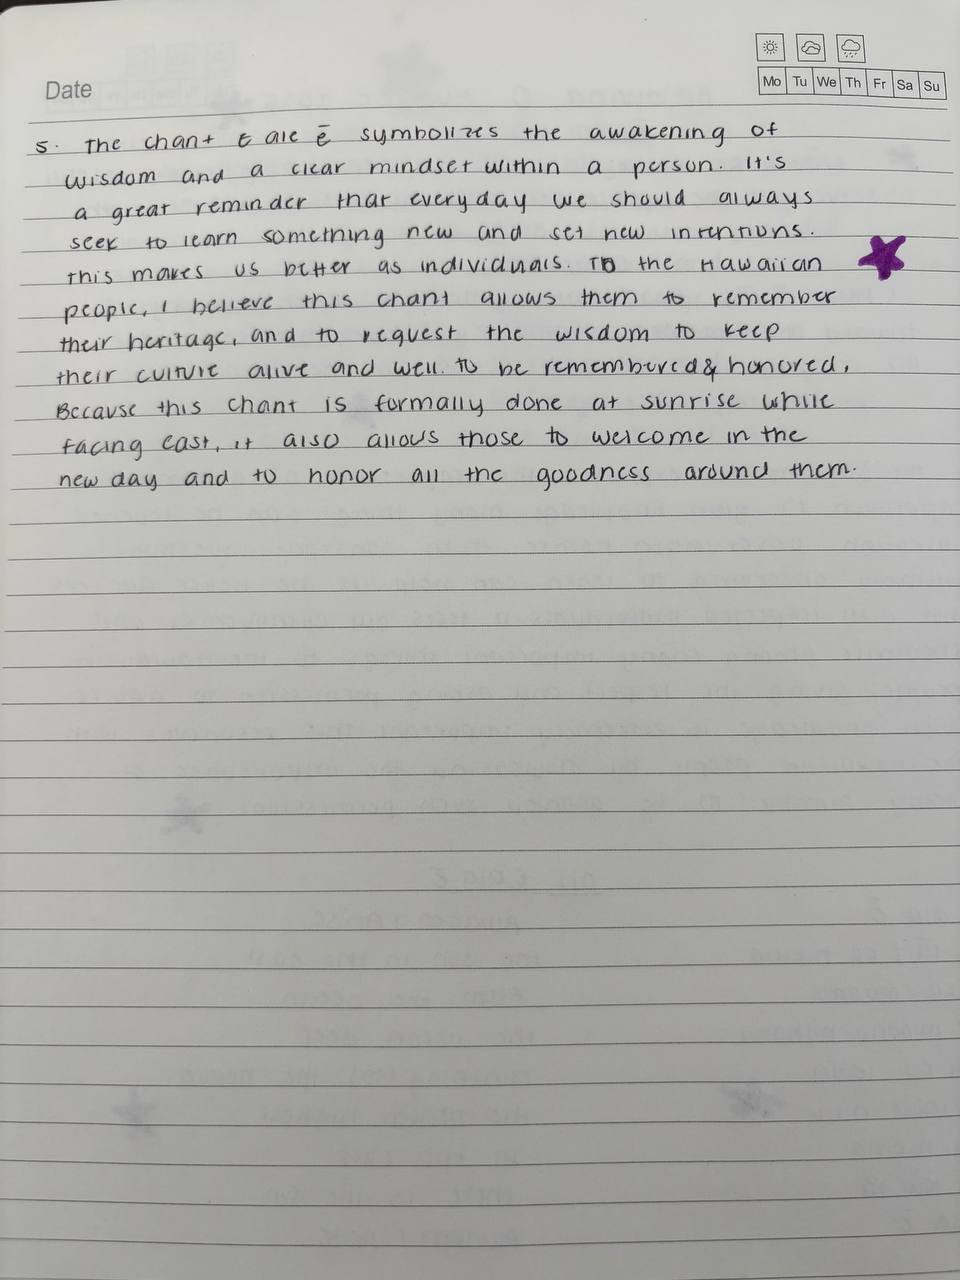 Date
Mo Tu We Th Fr Sa Su
5. The chant E ala ē symbolizes the awakening of
wisdom and a clear mindset within a person. It's
a great reminder that everyday we should always
seek to learn something new and set new intentions.
This makes us better as individuals. To the Hawaiian
people, I believe this chant allows them to remember
their heritage, and to request the wisdom to keep
their culture alive and well. To be remembered & honored,
Because this chant is formally done at sunrise while
facing East, it also allows those to welcome in the
new day and to honor all the goodness around them.